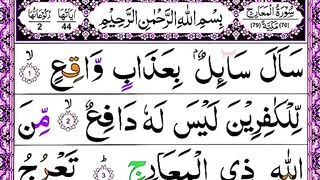 اٰیَاتُهَا 44 رُكُوْعَاتُهَا 2
بِسْمِ اللّٰهِ الرَّحْمٰنِ الرَّحِیْمِ
سُوْرَةُ الْمَعَارِجِ مَكِّیَّةٌ (70) (79)
سَاَلَ سَآىِٕلٌۢ بِعَذَابٍ وَّاقِعٍۙ ۝1
لِّلْكٰفِرِیْنَ لَیْسَ لَهٗ دَافِعٌۙ ۝2 مِّنَ
اللّٰهِ ذِی الْمَعَارِجِؕ ۝3 تَعْرُجُ